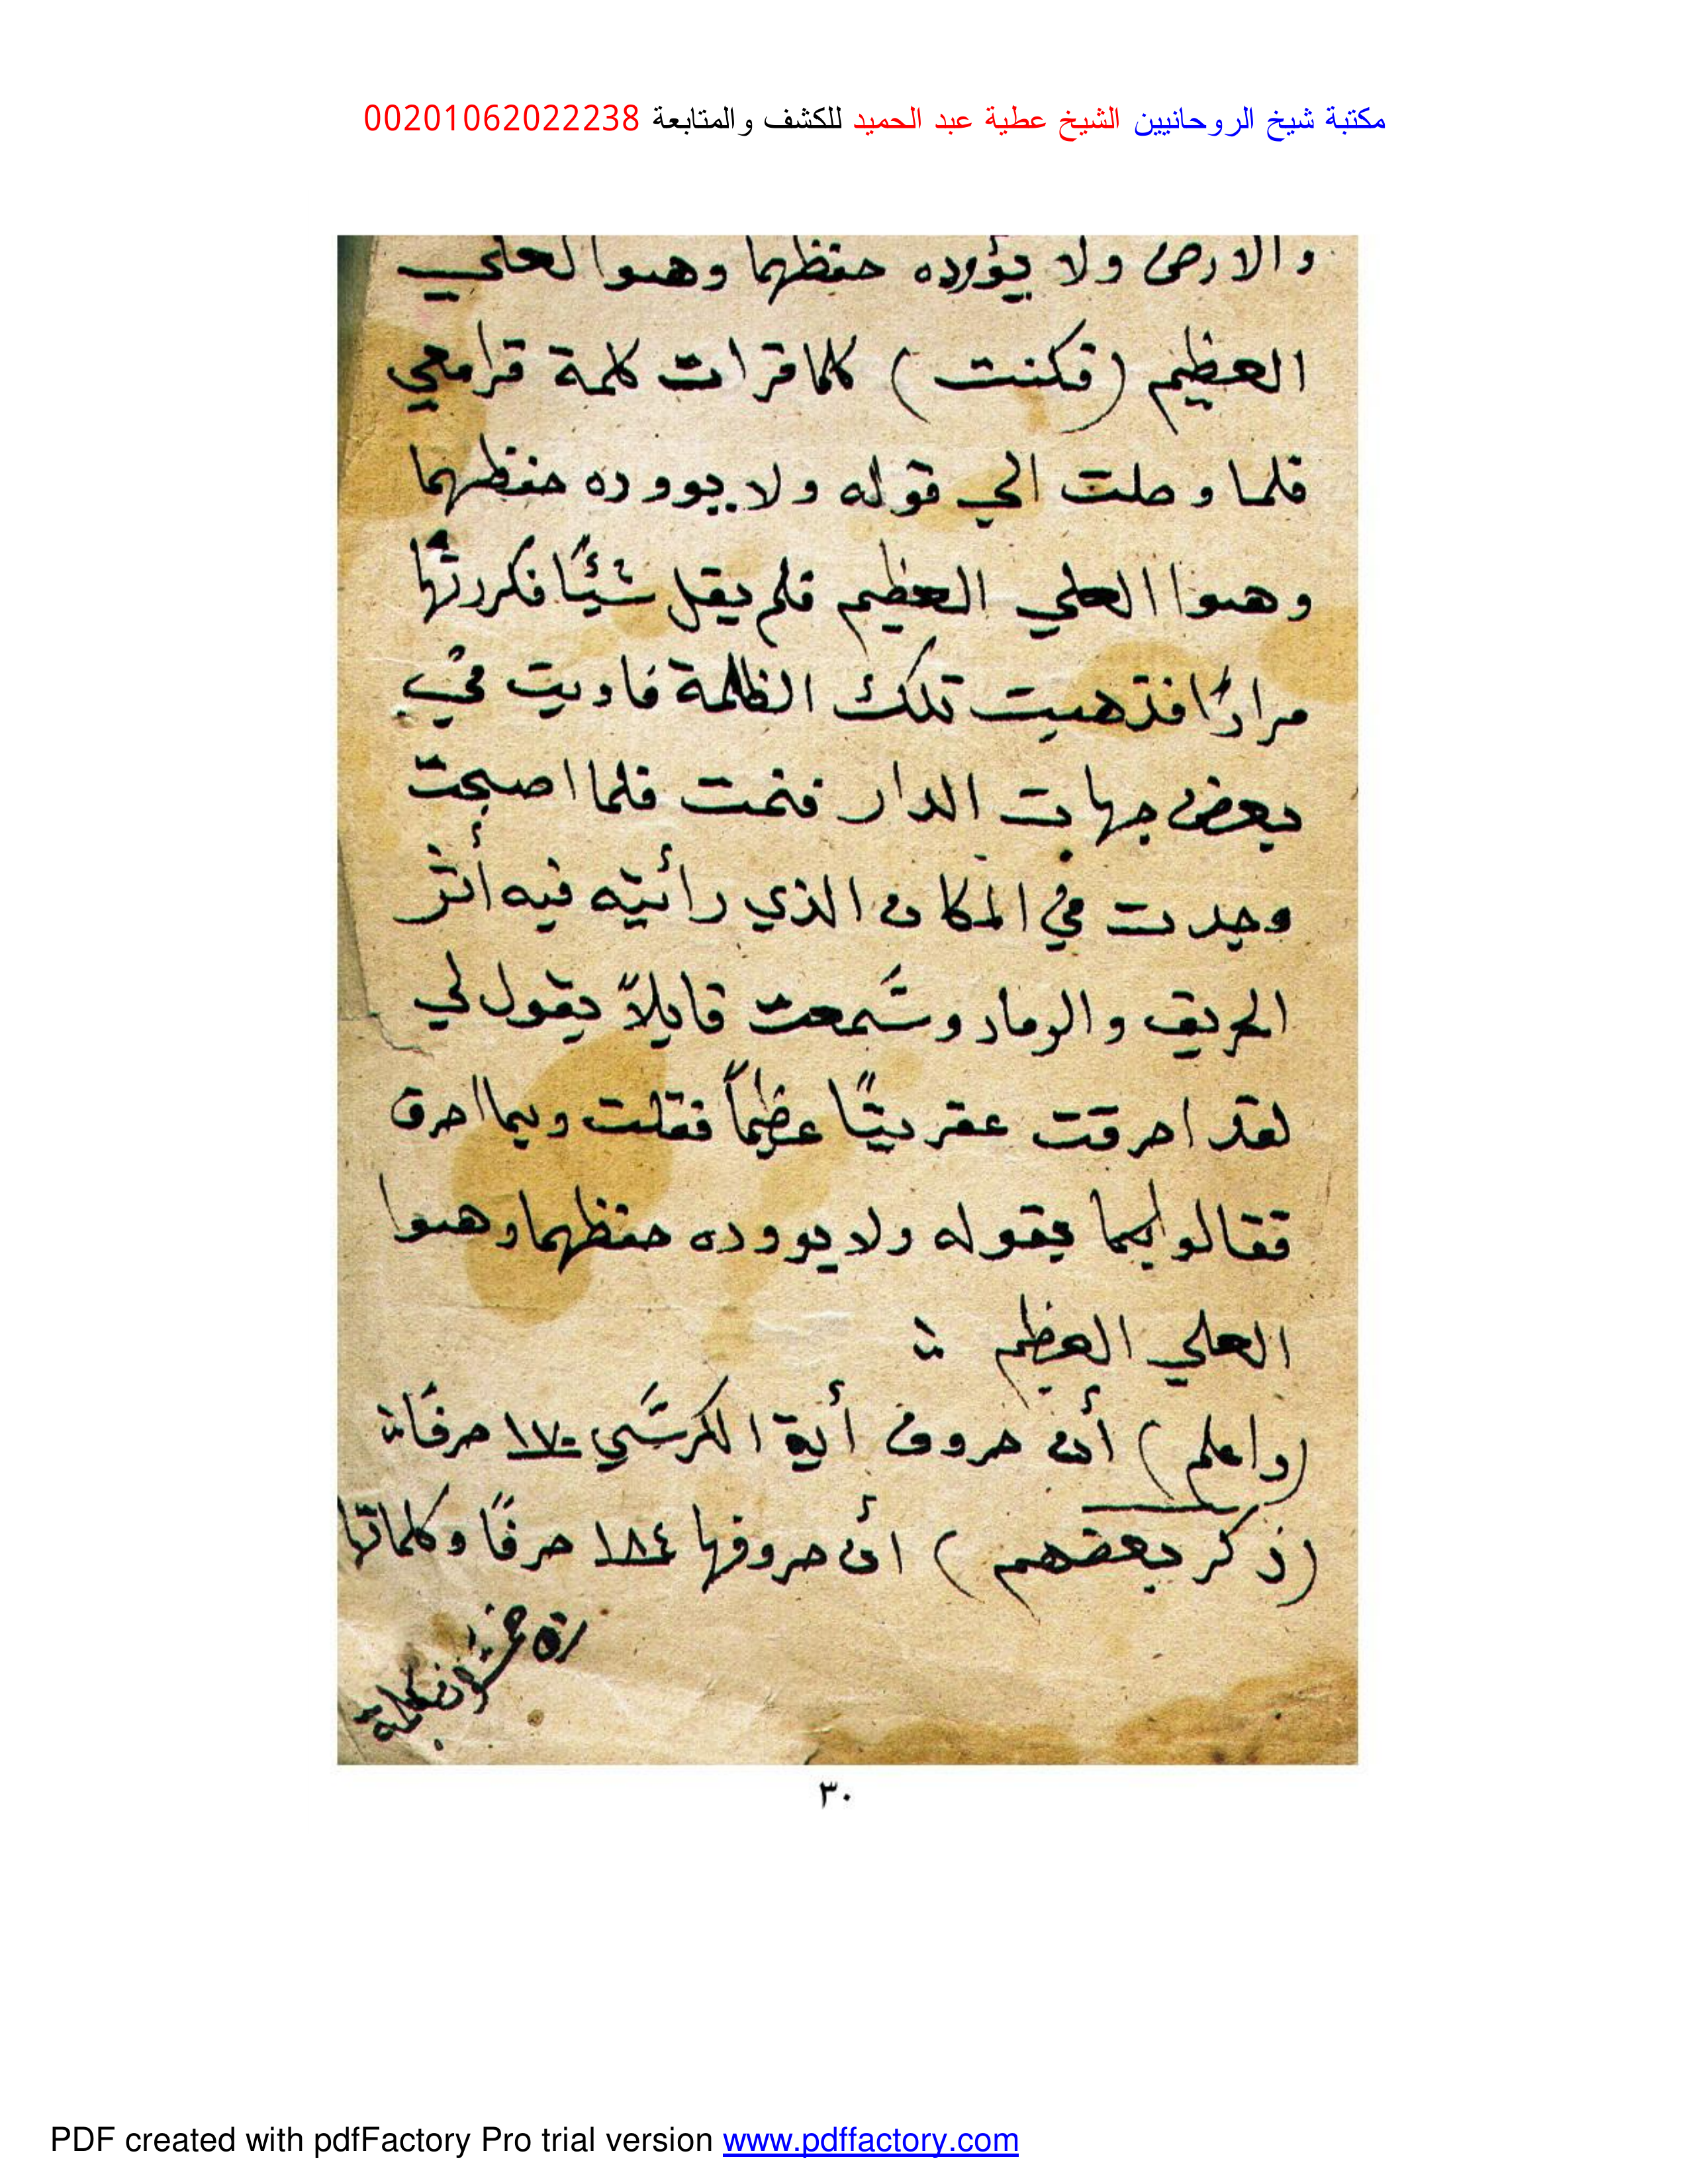 مكتبة شيخ الروحانيين الشيخ عطية عبد الحميد للكشف والمتابعة 00201062022238
والارض ولا يؤوده حفظهما وهوا لعلي
العظيم (فكنت) كلما قرات كلمة قرامعي
فلما وصلت الي قوله ولا يووده حفظهما
وهوا العلي العظيم فلم يقل شيئًا فكررتها
مرارًا فذهبت تلك الظلمة فاويت في
بعض جهات الدار فنمت فلما اصبحت
وجدت في المكان الذي رأئيته فيه أثر
الحريق والرماد وسمعت قايلاً يقول لي
لقد احرقت عفريتًا عظيماً فقلت وبما احرق
فقالوا بقوله ولا يووده حفظهما وهوا
العلي العظيم
(واعلم) أن حروف أية الكرسي ١٧٠ حرفًا
(ذكر بعضهم) أن حروفها ١٨٤ حرفًا وكلماتها
٣٠
PDF created with pdfFactory Pro trial version www.pdffactory.com